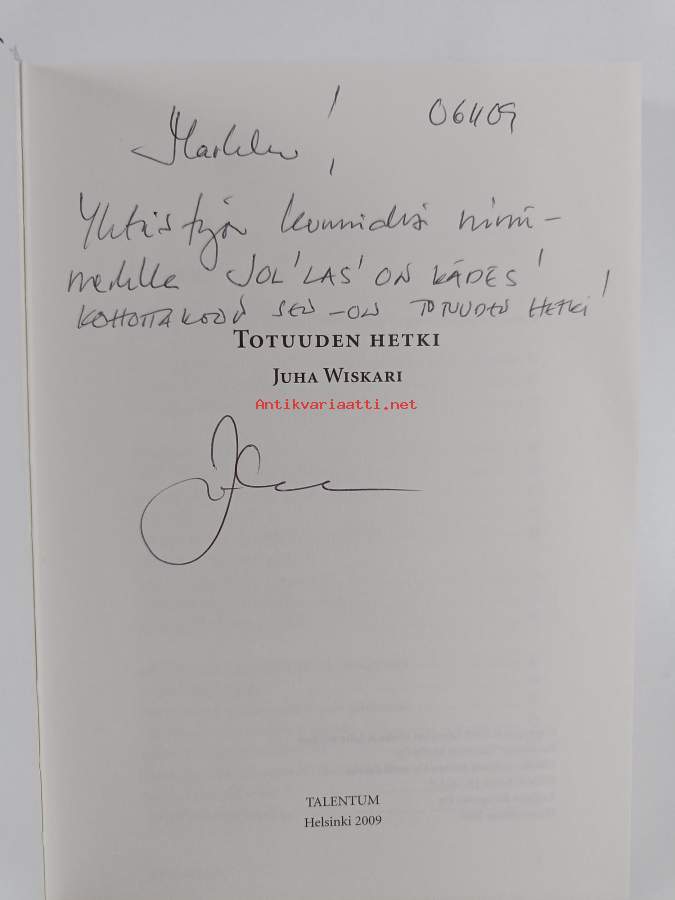 ! 061109
Yhtistyön kunniaksi nimi-
merkille JOL'LAS' ON KÄDES!
KOHOTTAKOON SEN - ON TOTUUDEN HETKI!
TOTUUDEN HETKI
JUHA WISKARI
Antikvariaatti.net
TALENTUM
Helsinki 2009